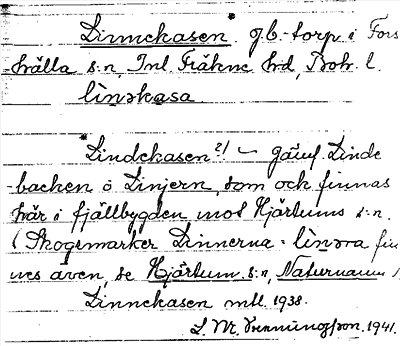 *Linnekasen g.b.-torp i Fors
-hälla s:n, Inl Fräkne hd, Boh. l.
lìnəkasa
*Lindekasen 2/ – jämf. Linde
-backen o Linjern, som och finnas
här i fjällbygden mot Hjärtums s:n.
(Skogsmarker Linnerna = lìnɔra fin
nes även, se Hjärtum s:n, Naturnamn)
Linnekasen mtl. 1938.
L. M. 1941.